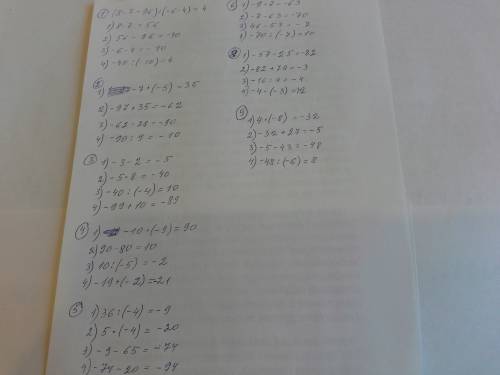 ① (8·7-96):(-6-4)=4
1) 8·7=56
2) 56-96=-40
3) -6-4=-10
4) -40:(-10)=4
②
1) -7+(-5)=35
2) -97+35=-62
3) -62-28=-90
4) -90:9=-10
③ 1) -3-2=-5
2) -5·8=-40
3) -40:(-4)=10
4) -99+10=-89
④ 1) -10·(-9)=90
2) 90-80=10
3) 10:(-5)=-2
4) -19+(-2)=-21
⑤ 1) 36:(-4)=-9
2) 5·(-4)=-20
3) -9-65=-74
4) -74-20=-94
⑥ 1) -9·7=-63
2) -7-63=-70
3) 46-53=-7
4) -70:(-7)=10
⑧ 1) -57-25=-82
2) -82+79=-3
3) -16:4=-4
4) -4·(-3)=12
⑨
1) 4·(-8)=-32
2) -32+27=-5
3) -5-43=-48
4) -48:(-6)=8